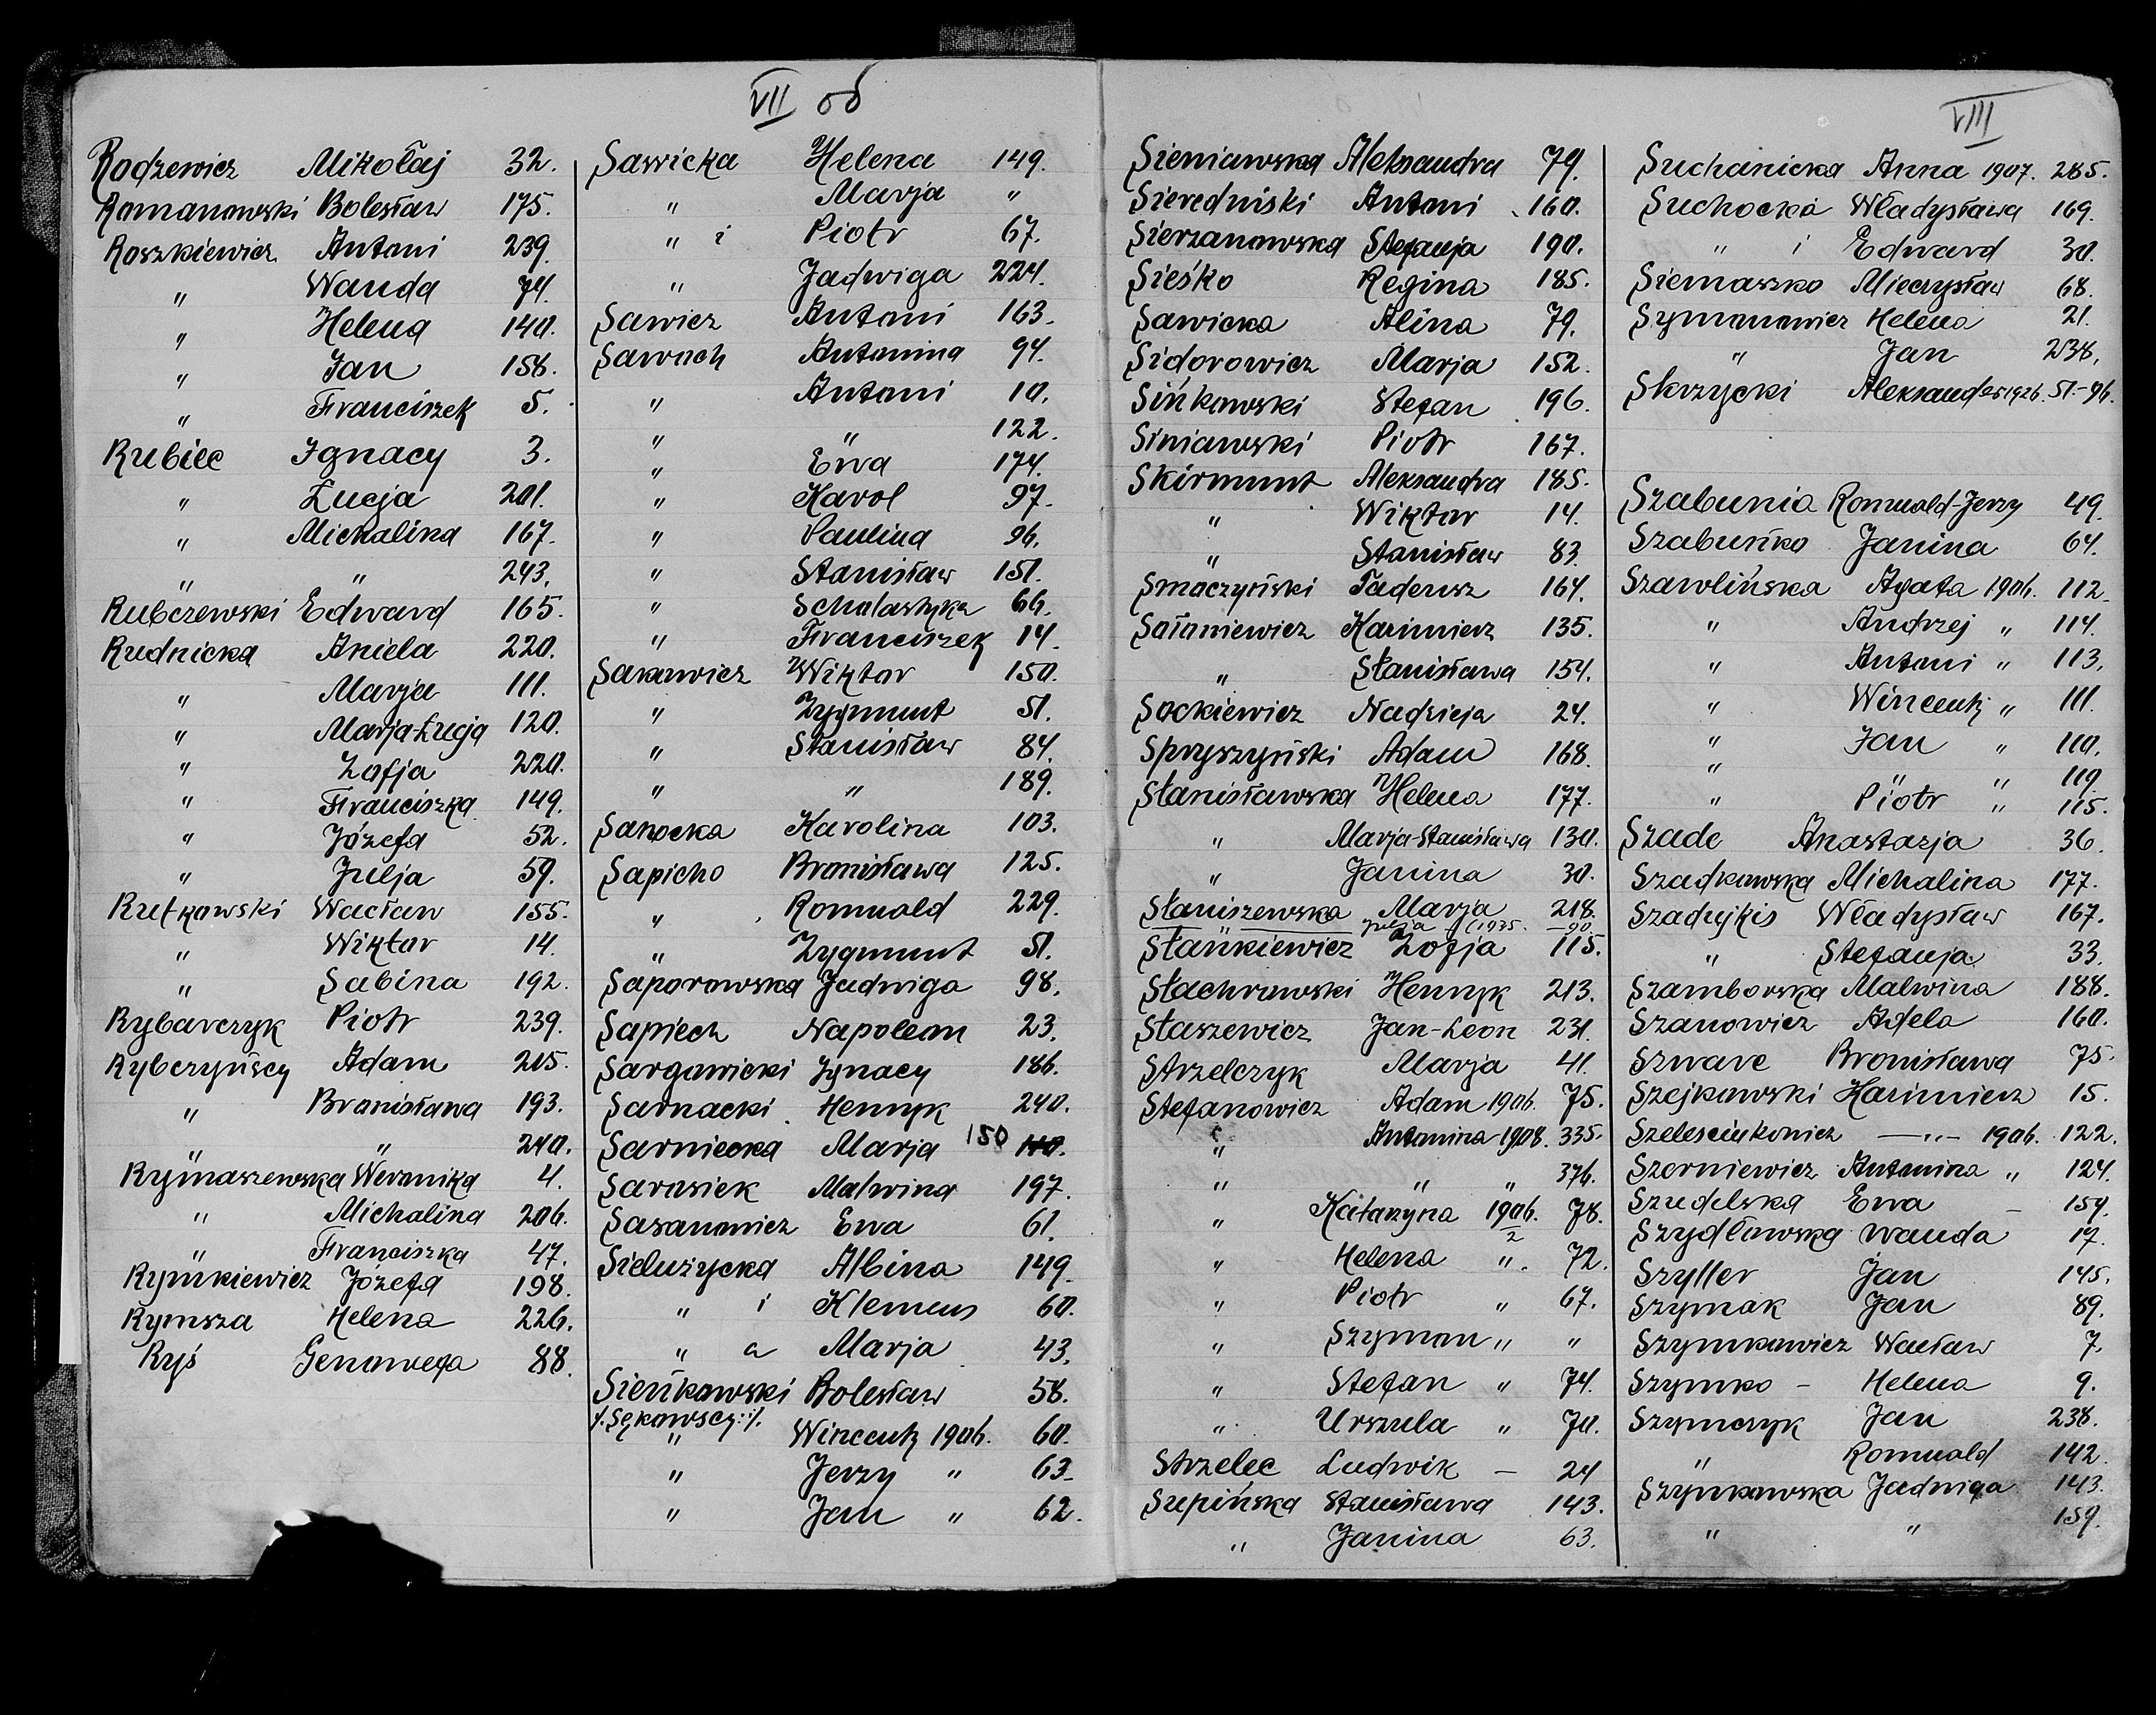 VII об
Rodzewicz Mikołaj 32.
Romanowski Bolesław 175.
Roszkiewicz Antoni 239.
" Wanda 74.
" Helena 140.
" Jan 158.
" Franciszek 5.
Rubiec Ignacy 3.
" Łucja 201.
" Michalina 167.
" " 243.
Rubczewski Edward 165.
Rudnicka Aniela 220.
" Marja 111.
" Marja-Łucja 120.
" Zofja 220.
" Franciszka 149.
" Józefa 52.
" Julja 59.
Rutkowski Wacław 155.
" Wiktor 14.
" Sabina 192.
Rybarczyk Piotr 239.
Rybczyńscy Adam 215.
" Bronisława 193.
" " 240.
Rymaszewska Weronika 4.
" Michalina 206.
" Franciszka 47.
Rymkiewicz Józefa 198.
Rymsza Helena 226.
Ryś Genowefa 88.
Sawicka Helena 149.
" Marja "
" i Piotr 67.
" Jadwiga 224.
Sawicz Antoni 163.
Sawoch Antonina 94.
" Antoni 10.
" " 122.
" Ewa 174.
" Karol 97.
" Paulina 96.
" Stanisław 151.
" Scholastyka 66.
" Franciszek 14.
Sakowicz Wiktor 150.
" Zygmunt 51.
" Stanisław 84.
" " 189.
Sanocka Karolina 103.
Sapicho Bronisława 125.
" Romuald 229.
" Zygmunt 51.
Saporowska Jadwiga 98.
Sapiech Napoleon 23.
Sargawicki Ignacy 186.
Sarnacki Henryk 240.
Sarniecka Marja 150 110.
Sarosiek Malwina 197.
Sasanowicz Ewa 61.
Sielużycka Albina 149.
" i Klemens 60.
" a Marja 43.
Sieńkowski Bolesław 58.
/.Sękowscy:/.
" Wincenty 1906. 60.
" Jerzy " 63.
" Jan " 62.
VIII
Sieniawska Aleksandra 79.
Sieredniski Antoni 160.
Sierzanowska Stefanja 190.
Sieśko Regina 185.
Sawicka Alina 79.
Sidorowicz Marja 152.
Sińkowski Stefan 196.
Siniawski Piotr 167.
Skirmunt Aleksandra 185.
" Wiktor 14.
" Stanisław 83.
Smaczyński Tadeusz 164.
Sołoniewicz Kazimierz 135.
" Stanisława 154.
Sockiewicz Nadzieja 24.
Spryszyński Adam 168.
Stanisławska Helena 177.
" Marja-Stanisława 130.
" Janina 30.
Staniszewska Marja 218.
Julja (1935. - 90.
Stańkiewicz Zofja 115.
Stachrowski Henryk 213.
Staszewicz Jan-Leon 231.
Strzelczyk Marja 41.
Stefanowicz Adam 1906. 75.
" Antonina-1908. 335.
" " " 376.
" Katarzyna 1906. 78.
2
" Helena " 72.
" Piotr " 67.
" Szymon " "
" Stefan " 74.
" Urszula " 70.
Strzelec Ludwik - 24
Supińska Stanisława 143.
" Janina 63.
Suchanicka Anna 1907. 285.
Suchocka Władysława 169.
" i Edward 30.
Siemaszko Mieczysław 68.
Symonowicz Helena 21.
" Jan 238.
Skrzycki Aleksander 1926. 51.-96.
Szabunia Romuald-Jerzy 49.
Szabuńko Janina 64.
Szawlińska Agata 1906. 112.
" Andrzej " 114.
" Antoni " 113.
" Wincenty " 111.
" Jan " 110.
" " " 119.
" Piotr " 115.
Szade Anastazja 36.
Szadkowska Michalina 177.
Szadujkis Władysław 167.
" Stefanja 33.
Szamborska Malwina 188.
Szanowicz Adela 160.
Szware Bronisława 75.
Szejkowski Kazimierz 15.
Szelesciukowicz —"— 1906. 122.
Szorniewicz Antonina " 124.
Szudelska Ewa - 159.
Szydłowska Wanda 17.
Szyller Jan 145.
Szymak Jan 89.
Szymkowicz Wacław 7.
Szymko - Helena 9.
Szymczyk Jan 238.
" Romuald 142.
Szymkowska Jadwiga 143.
" " 159.